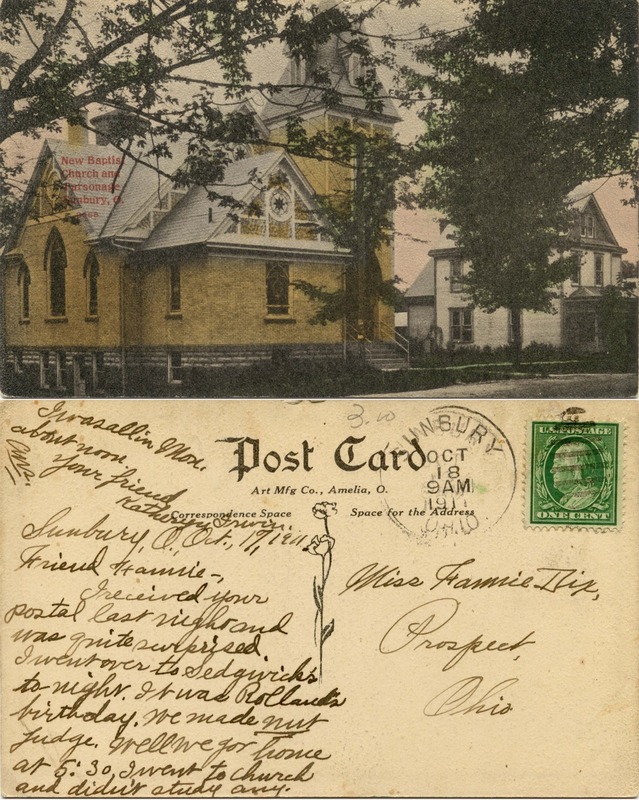 New Baptist
Church and
Parsonage
Sunbury, O.
I was all in Mon.
about noon.
Ans.
Your friend
Kathryn Irwin.
3.00
Post Card
Art Mfg Co., Amelia, O.
Correspondence Space
Space for the Address
SUNBURY
OCT
18
9AM
1911
OHIO
U.S. POSTAGE
ONE CENT
Sunbury, O., Oct., 17, 1911
Friend Fannie-,
I received your
postal last night and
was quite surprised
I went over to Sedgwick's
to night. It was Rolland's
birthday. We made nut
fudge. Well we got home
at 5:30, I went to church
and didn't study any.
Miss Fannie Dix,
Prospect,
Ohio